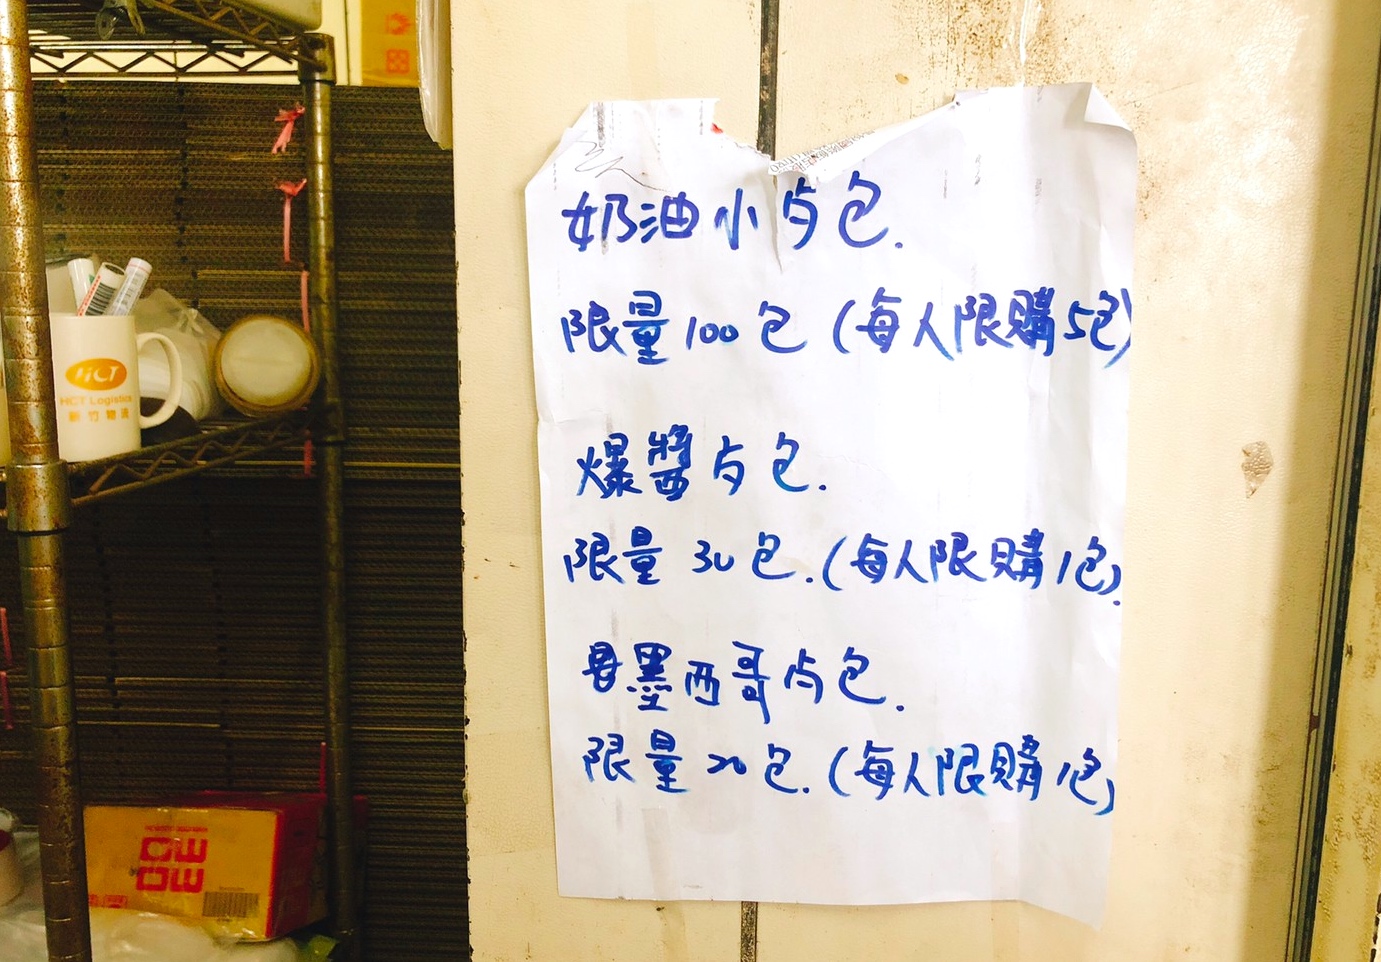 奶油小勺包.
限量100包(每人限購5包)
爆醬勺包.
限量30包.(每人限購1包).
墨西哥勺包.
限量20包.(每人限購1包)
HCT
HCT Logistics
新竹物流